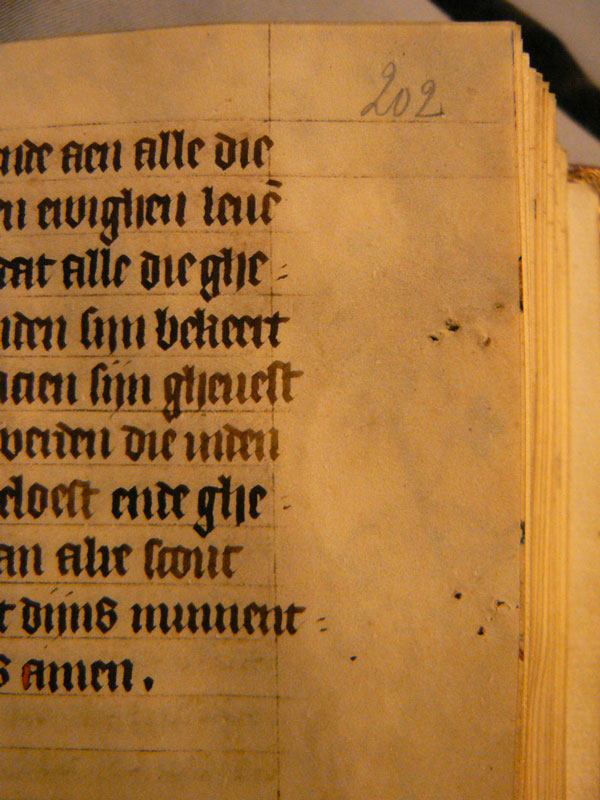 202
nde aen alle die
en ewighen leuē
dat alle die ghe-
nden sijn bekeert
acien sijn gheuest
werden die inden
eloest ende ghe-
an alre scout
t dijns
s amen.